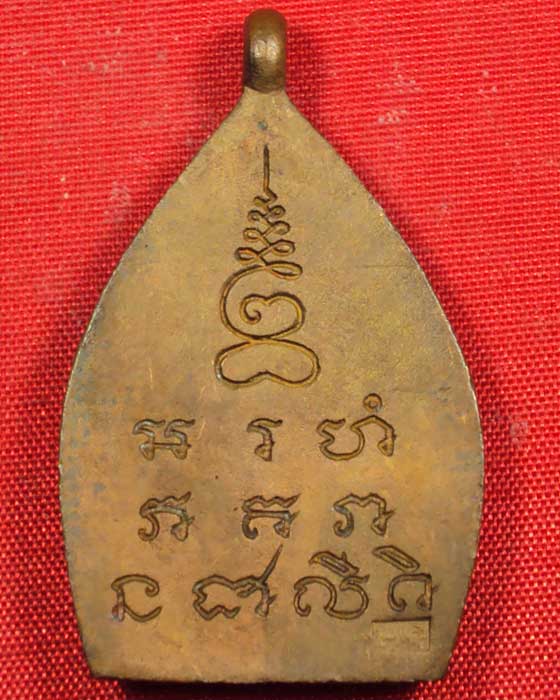 អ រ ហំ
ភ គ វា
ន ជា លី តិ